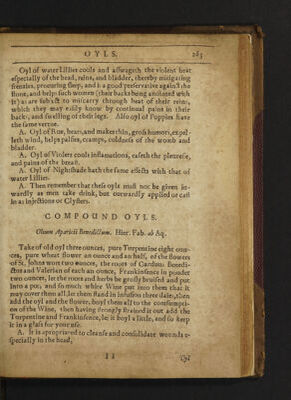 OYLS. 283
Oyl of water Lillies cools and asswageth the violent heat
especially of the head, reins, and bladder, thereby mitigating
frensies, procuring sleep, and is a good preservative against the
stone, and helps such women (their backs being anointed with
it) as are subject to miscarry through heat of their reins,
which they may easily know by continual pains in their
backs, and swelling of their legs. Also oyl of Poppies have
the same vertue.
A. Oyl of Rue, heats, and makes thin, gross humors, expel-
leth wind, helps palsies, cramps, coldness of the womb and
bladder.
A. Oyl of Violets cools inflamations, easeth the pleuresie,
and pains of the breast.
A. Oyl of Nightshade hath the same effects with that of
water Lillies.
A. Then remember that these oyls must not be given in-
wardly as men take drink, but outwardly applied or cast
in as injections or Clysters.
COMPOUND OYLS.
Oleum Aparicii Benedictum. Hier. Fab. ab Aq.
Take of old oyl three ounces, pure Turpentine eight oun-
ces, pure wheat flower an ounce and an half, of the flowers
of St. Johns wort two ounces, the roots of Carduus Benedi-
ctus and Valerian of each an ounce, Frankinsence in pouder
two ounces, let the roots and herbs be grossly bruised and put
into a pot, and so much white Wine put into them that it
may cover them all, let them stand in infusion three daies, then
add the oyl and the flower, boyl them all to the consumpti-
on of the Wine, then having strongly strained it out add the
Turpentine and Frankinsence, let it boyl a little, and so keep
it in a glass for your use.
A. It is apropriated to cleanse and consolidate wounds e-
specially in the head,